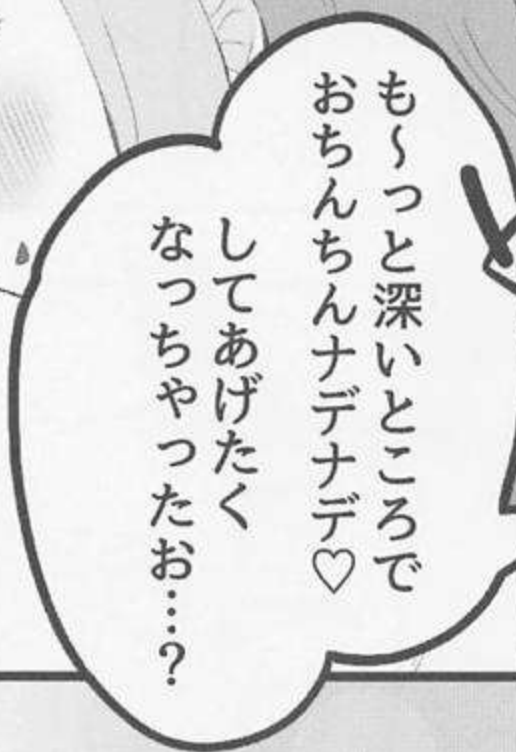 も〜っと深いところで
おちんちんナデナデ♡
してあげたく
なっちゃったお…？